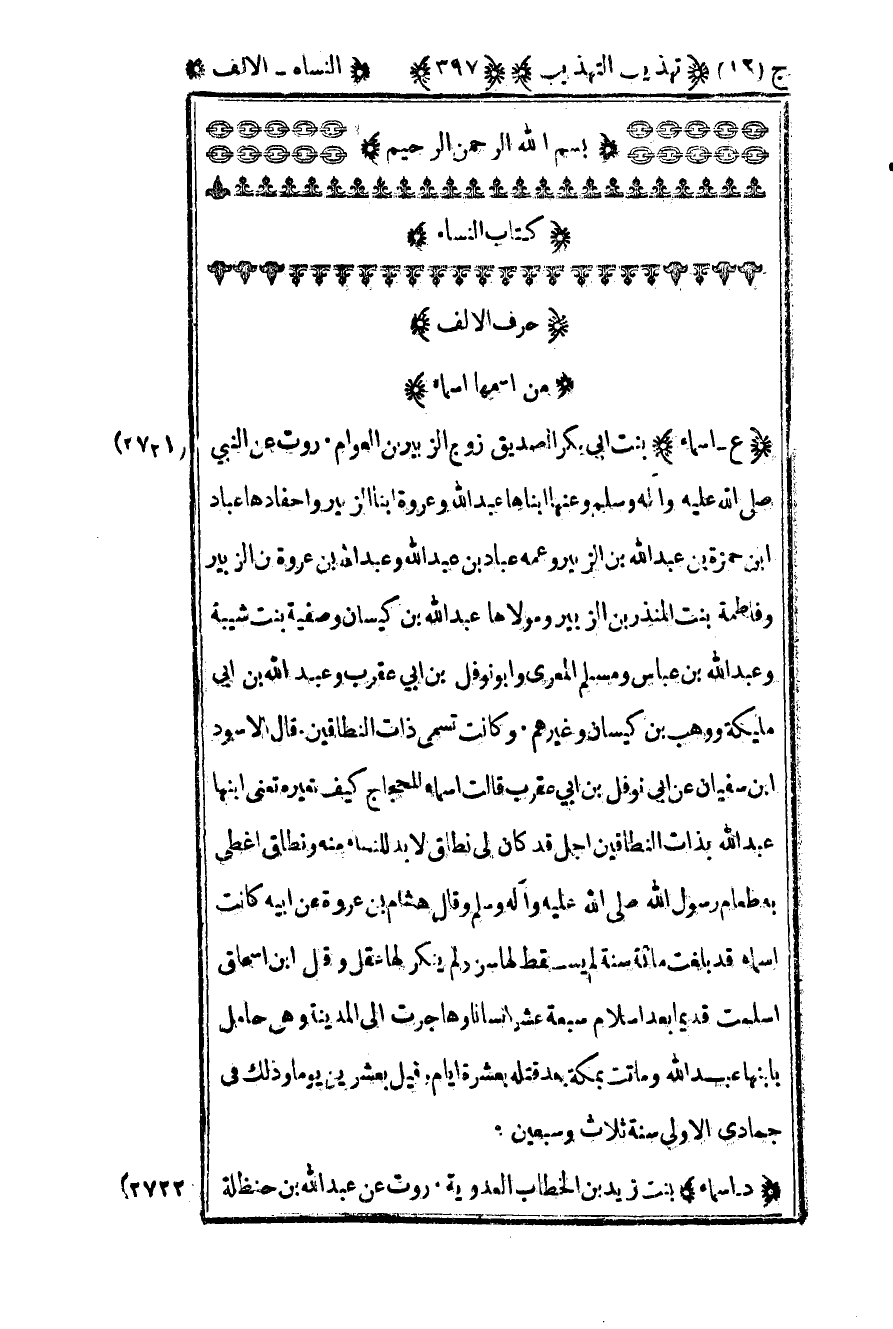 ج (١٢) ﴿ تهذيب التهذيب ﴾ ﴿ ٣٩٧ ﴾ ﴿ النساء - الالف ﴾
﴿ بسم الله الرحمن الرحيم ﴾
﴿ كتاب النساء ﴾
﴿ حرف الالف ﴾
﴿ من اسمها اسماء ﴾
﴿ ع - اسماء ﴾ بنت ابي بكر الصديق زوج الزبير بن العوام . روت عن النبي (٢٧٢١)
صلى الله عليه وآله وسلم وعنها ابناها عبد الله وعروة ابنا الزبير واحفادها عباد
ابن حمزة بن عبد الله بن الزبير وعمه عباد بن عبد الله وعبد الله بن عروة ن الزبير
وفاطمة بنت المنذر بن الزبير ومولاها عبد الله بن كيسان وصفية بنت شيبة
وعبد الله بن عباس ومسلم المعرى وابو نوفل بن ابي عقرب وعبد الله بن ابي
مليكة ووهب بن كيسان وغيرهم . وكانت تسمى ذات النطاقين . قال الاسود
ابن سفيان عن ابي نوفل بن ابي عقرب قالت اسماء للحجاج كيف تعيره تعنى ابنها
عبد الله بذات النطاقين اجل قد كان لى نطاق لابد للنساء منه ونطاق اغطي
به طعام رسول الله صلى الله عليه وآله وسلم وقال هشام بن عروة عن ابيه كانت
اسماء قد بلغت مائة سنة لم يسقط لها سن ولم ينكر لها عقل وقال ابن اسحاق
اسلمت قديما بعد اسلام سبعة عشر انسانا وهاجرت الى المدينة وهى حامل
بابنها عبد الله وماتت بمكة بعد قتله بعشرة ايام، قيل بعشرين يوما وذلك فى
جمادى الاولى سنة ثلاث وسبعين .
﴿ د - اسماء ﴾ بنت زيد بن الخطاب العدوية . روت عن عبد الله بن حنظلة (٢٧٢٢